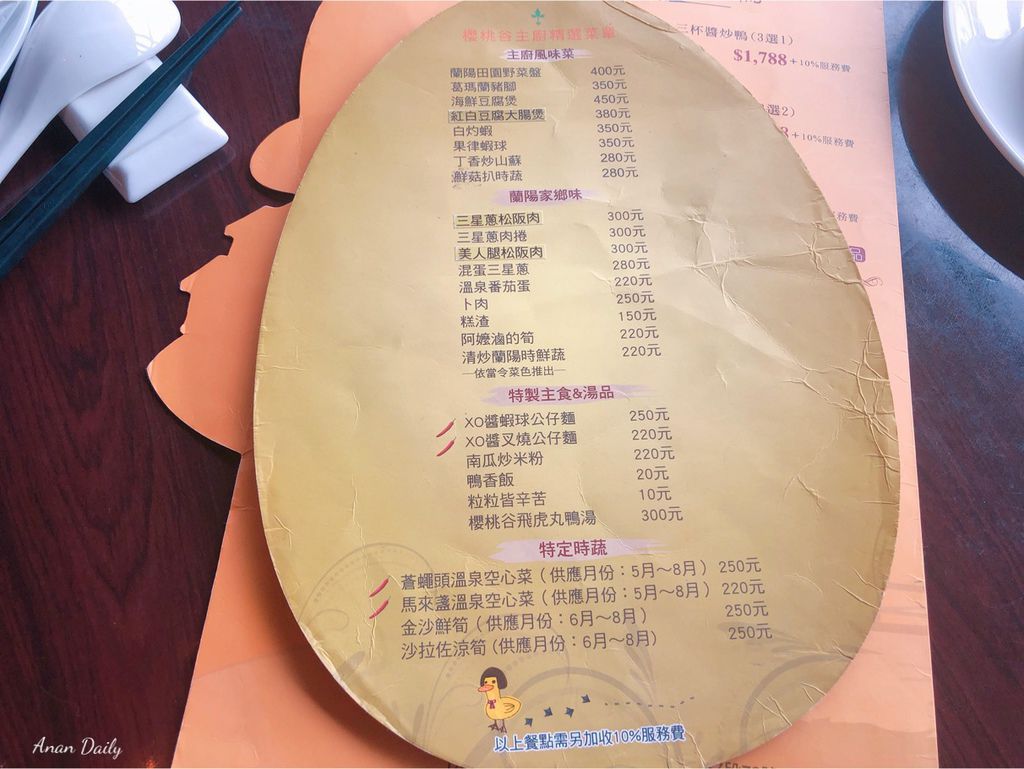 櫻桃谷主廚精選菜單
主廚風味菜
蘭陽田園野菜盤 400元
葛瑪蘭豬腳 350元
海鮮豆腐煲 450元
紅白豆腐大腸煲 380元
白灼蝦 350元
果律蝦球 350元
丁香炒山蘇 280元
鮮菇扒時蔬 280元
蘭陽家鄉味
三星蔥松阪肉 300元
三星蔥肉捲 300元
美人腿松阪肉 300元
混蛋三星蔥 280元
溫泉番茄蛋 220元
卜肉 250元
糕渣 150元
阿嬤滷的筍 220元
清炒蘭陽時鮮蔬 220元
—依當令菜色推出—
特製主食&湯品
XO醬蝦球公仔麵 250元
XO醬叉燒公仔麵 220元
南瓜炒米粉 220元
鴨香飯 20元
粒粒皆辛苦 10元
櫻桃谷飛虎丸鴨湯 300元
特定時蔬
蒼蠅頭溫泉空心菜（供應月份：5月～8月） 250元
馬來盞溫泉空心菜（供應月份：5月～8月） 220元
金沙鮮筍（供應月份：6月～8月） 250元
沙拉佐涼筍（供應月份：6月～8月） 250元
以上餐點需另加收10%服務費
三杯醬炒鴨(3選1)
$1,788+10%服務費
選2)
+10%服務費
務費
品
Anan Daily